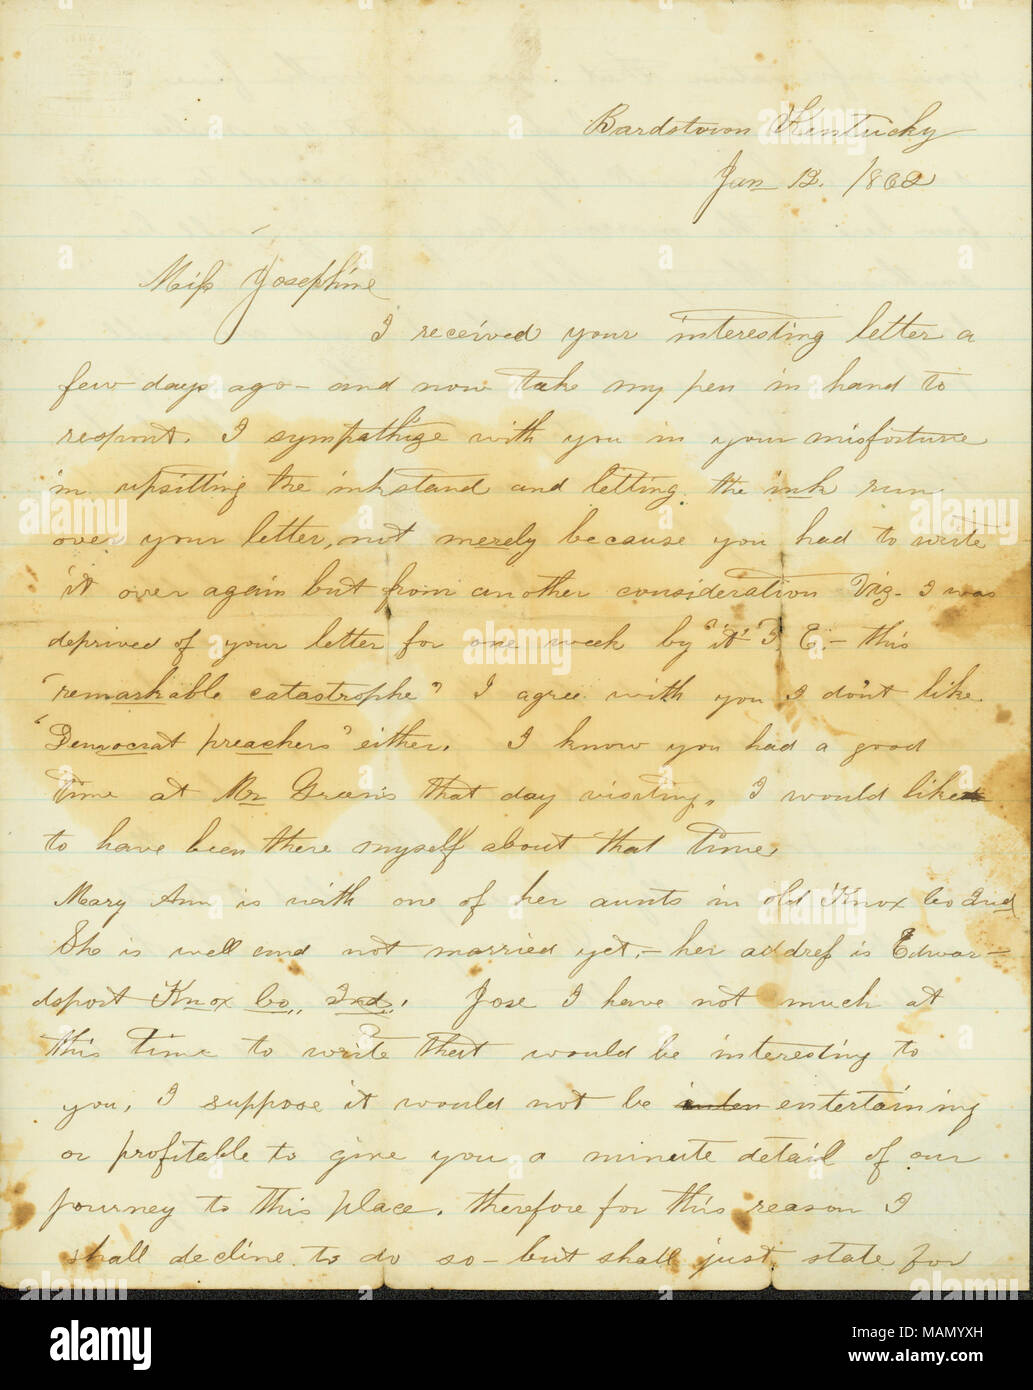 Bardstown Kentucky
Jan 12. 1862
Miss Josephine
I received your interesting letter a
few days ago – and now take my pen in hand to
respont. I sympathize with you in your misfortune
in upsitting the inkstand and letting the ink run
over your letter, not merely because you had to write
it over again but from another consideration Viz. I was
deprived of your letter for one week by "it" – this
"remarkable catastrophe" I agree with you I don't like
"Democrat preachers" either. I know you had a good
time at Mr Green's that day visiting. I would like
to have been there myself about that time
Mary Ann is with one of her aunts in old Knox Co Ind
She is well and not married yet, – her address is Edwar-
dsport Knox Co., Ind. Jose I have not much at
this time to write that would be interesting to
you, I suppose it would not be entertaining
or profitable to give you a minute detail of our
journey to this place. therefore for this reason I
shall decline to do so – but shall just state for
alamy
alamy stock photo
MAMYXH
www.alamy.com